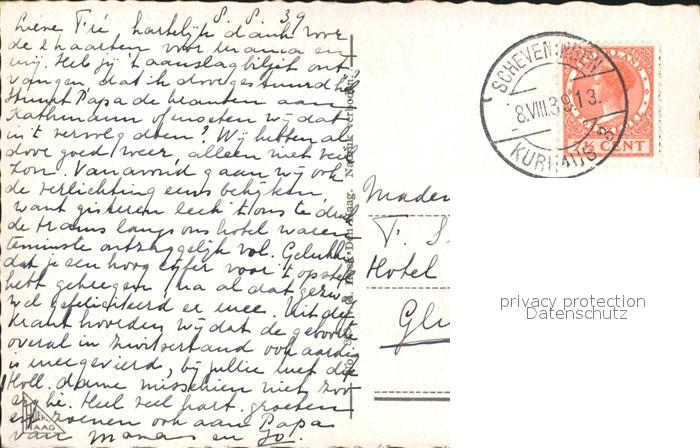 8. 8. 39
Lieve Fré hartelijk dank voor
de 2 kaarten voor mama en
mij. Heb jij 't aanslagbiljet ont
vangen dat ik doorgestuurd heb
Stuurt Papa de kranten aan
Kathmann of moeten wij dat
in 't vervolg doen? Wij hebben al
door goed weer, alleen niet veel
zon. Vanavond gaan wij ook
de verlichting eens bekijken
want gisteren leek 't ons te druk
de trams langs ons hotel waren
tenminste ontzaggelijk vol. Gelukkig
dat je een hoog cijfer voor 't opstel
hebt gekregen, na al dat
wel gefeliciteerd er mee. Uit de
krant hoorden wij dat de geboorte
overal in Zwitserland ook aardig
is meegevierd, bij jullie met die
Holl. dame misschien niet zoo
erg he. Heel veel hart. groeten
en zoenen ook aan Papa
van Mama en Jo.
HAAG
SCHEVENINGEN
8.VIII.39. 13.
KURHAUS
CENT
Madem
F. S
Hotel
Gli
privacy protection
Datenschutz